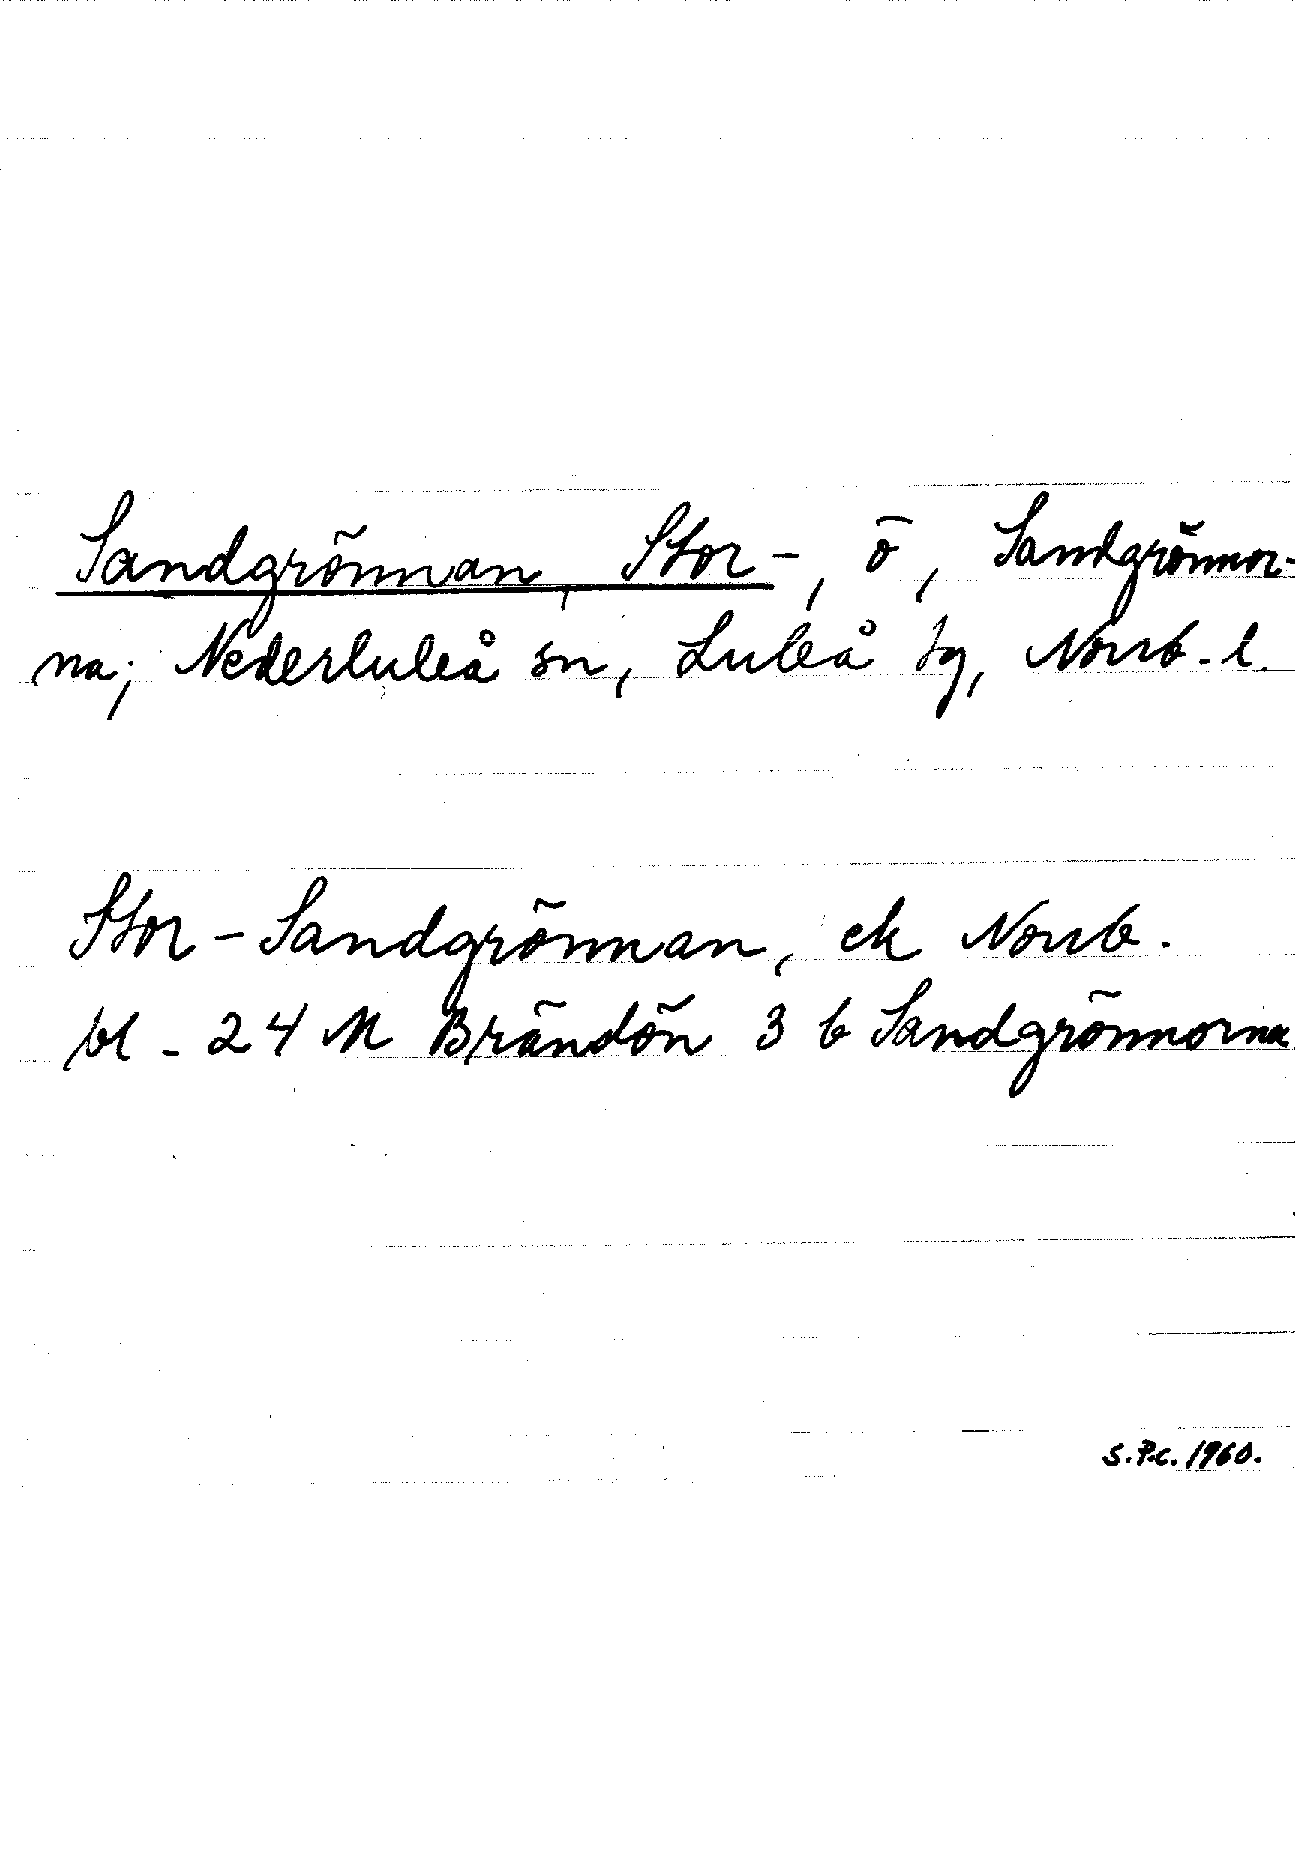 Sandgrönnan, Stor-, ö, Sandgrönnor-
na; Nederluleå sn, Luleå tg, Norrb. l.
Stor-Sandgrönnan, ek Norrb.
bl. 24 M Brändön 3 b Sandgrönnorna
S.P.C. 1960.